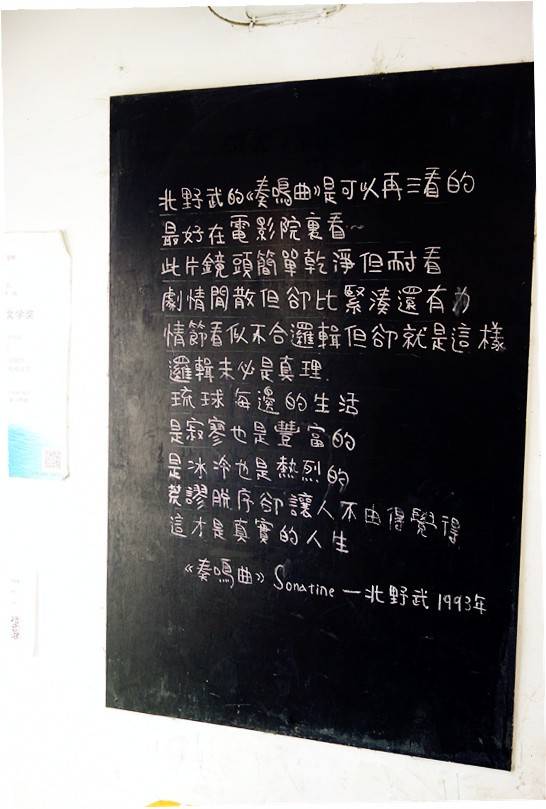 北野武的《奏鳴曲》是可以再三看的
最好在電影院裏看~
此片鏡頭簡單乾淨但耐看
劇情閒散但卻比緊湊還有力
情節看似不合邏輯但卻就是這樣
邏輯未必是真理.
琉球海邊的生活
是寂寥也是豐富的
是冰冷也是熱烈的
荒謬脫序卻讓人不由得覺得
這才是真實的人生
《奏鳴曲》Sonatine 一北野武1993年
文学奖